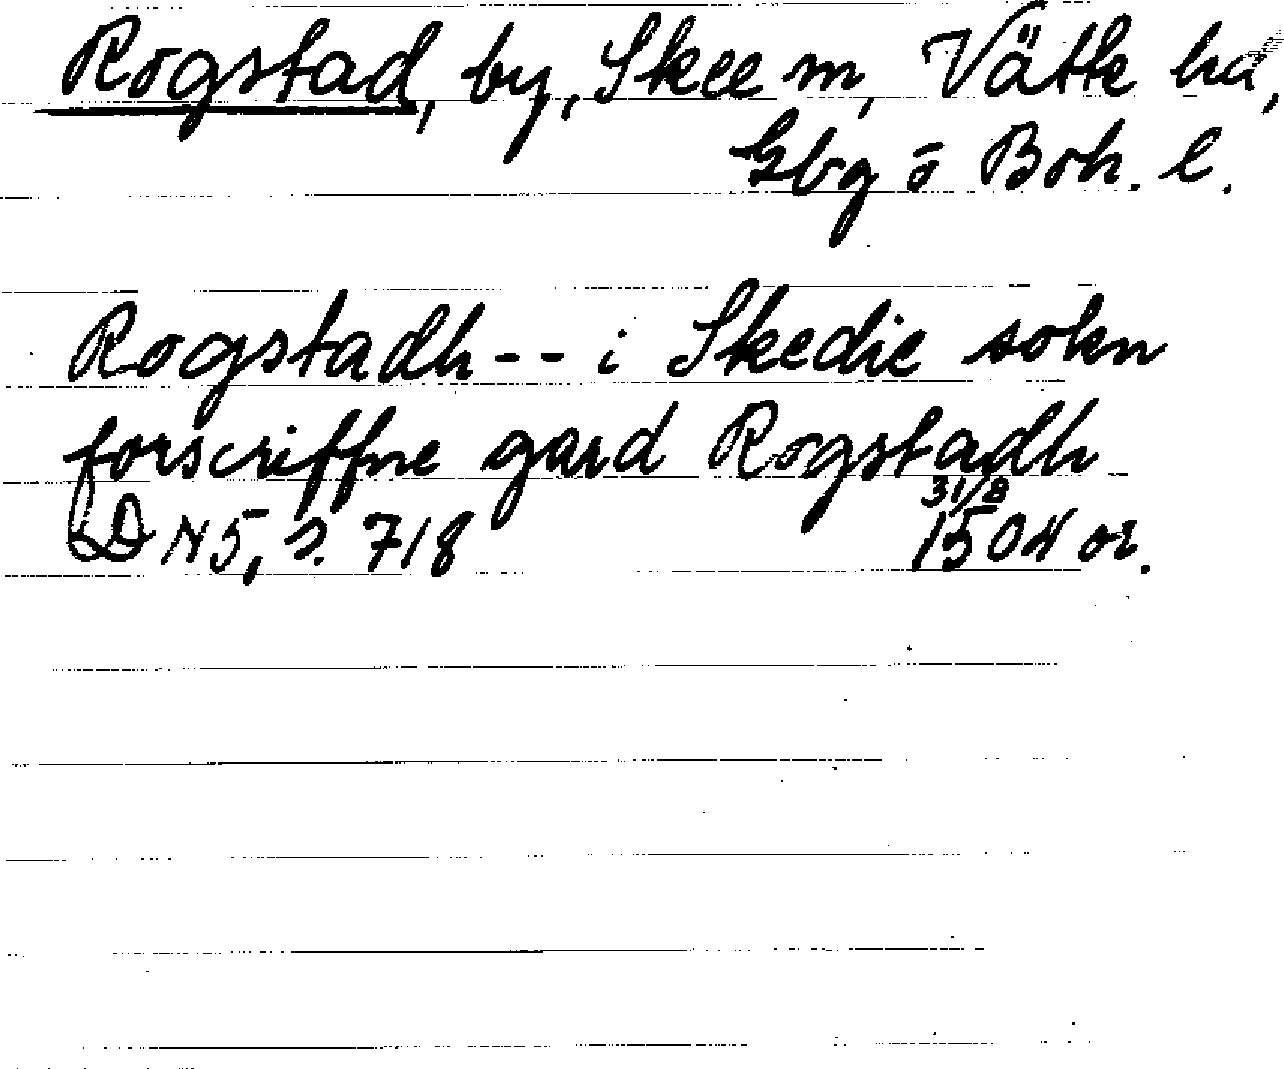 Rogstad, by, Skee sn, Vätte hd,
Gbg o Boh. l.
Rogstadh -- i Skedie sokn
forscriffne gard Rogstadh
31/8
DN 5, s. 718 1504 or.